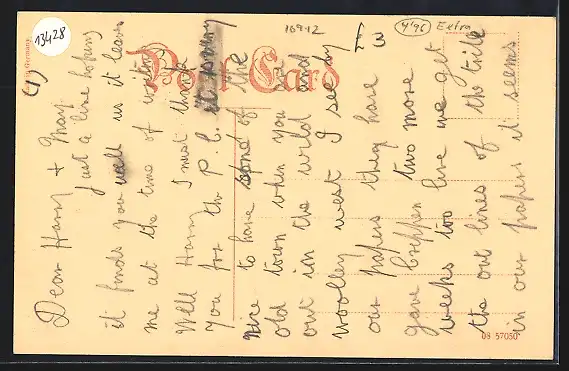 13428
(1)
10912
4'96
Extra
13
Post Card
Germany
08 57050
Dear Harry + May
Just a line hoping
it finds you well as it leaves
me at the time of writing
Well Harry I must thank
you for the P. C. it
to have of the
nice
old town when you
out in the wild and
woolley west I see by
our papers they have
gave Crippen two more
weeks too live we get
the out lines of the trile
in our papers it seems